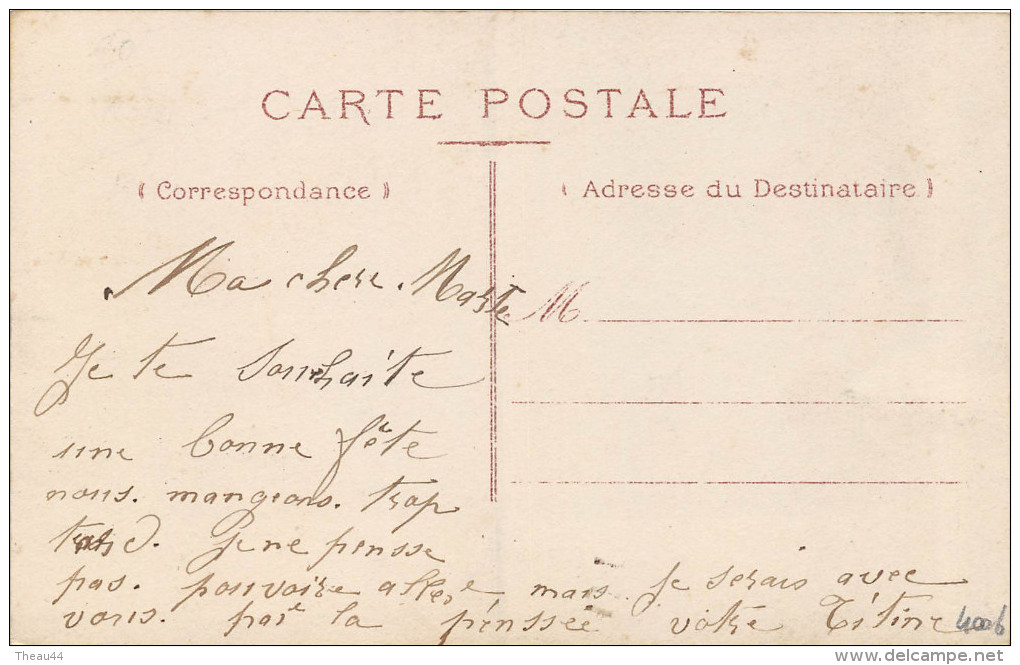 CARTE POSTALE
( Correspondance )
( Adresse du Destinataire )
Ma chere Marte
M
Je te souhaite
une bonne fête
nous. mangeons. trop
tard. Je ne pensse
pas. pouvoire allere mais Je serais avec
vous. par la penssée votre Titine
4006
Theau44
delcampe.net